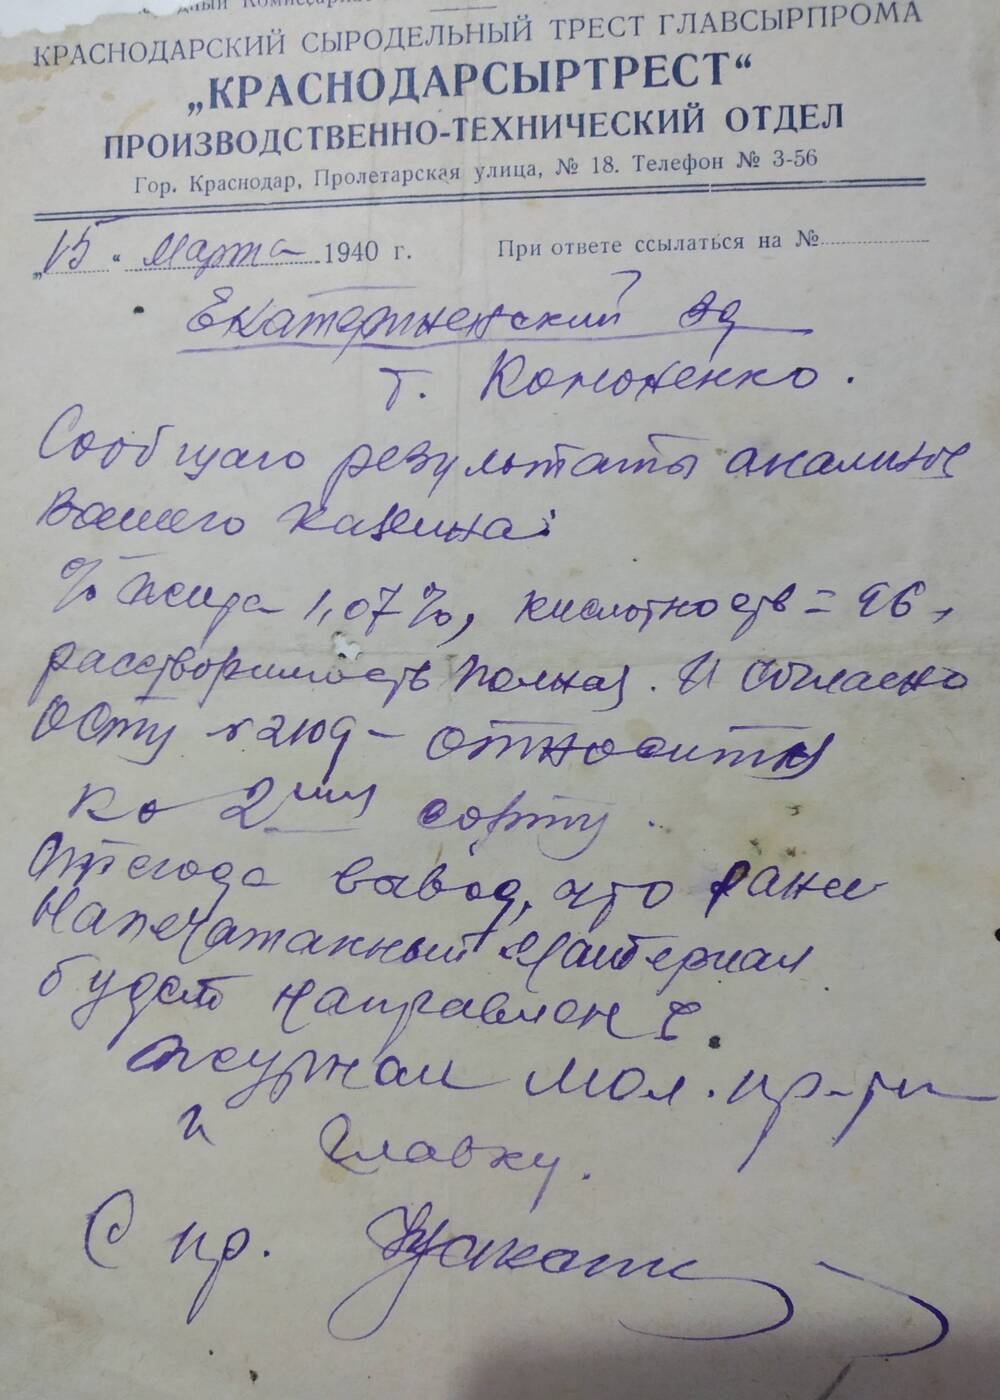 КРАСНОДАРСКИЙ СЫРОДЕЛЬНЫЙ ТРЕСТ ГЛАВСЫРПРОМА
„КРАСНОДАРСЫРТРЕСТ“
ПРОИЗВОДСТВЕННО-ТЕХНИЧЕСКИЙ ОТДЕЛ
Гор. Краснодар, Пролетарская улица, № 18. Телефон № 3-56
„15“ Марта 1940 г. При ответе ссылаться на №
Екатериненский зд
т. Кононенко.
Сообщаю результаты анализов
Вашего казеина:
% жира 1,07%, кислотность = 96,
растворимость полная. И согласно
ОСту на год - относится
ко 2му сорту.
Отсюда вывод, что
Напечатанный материал
будет направлен в
журнал мол. пр-ти
и Главку.
С пр.